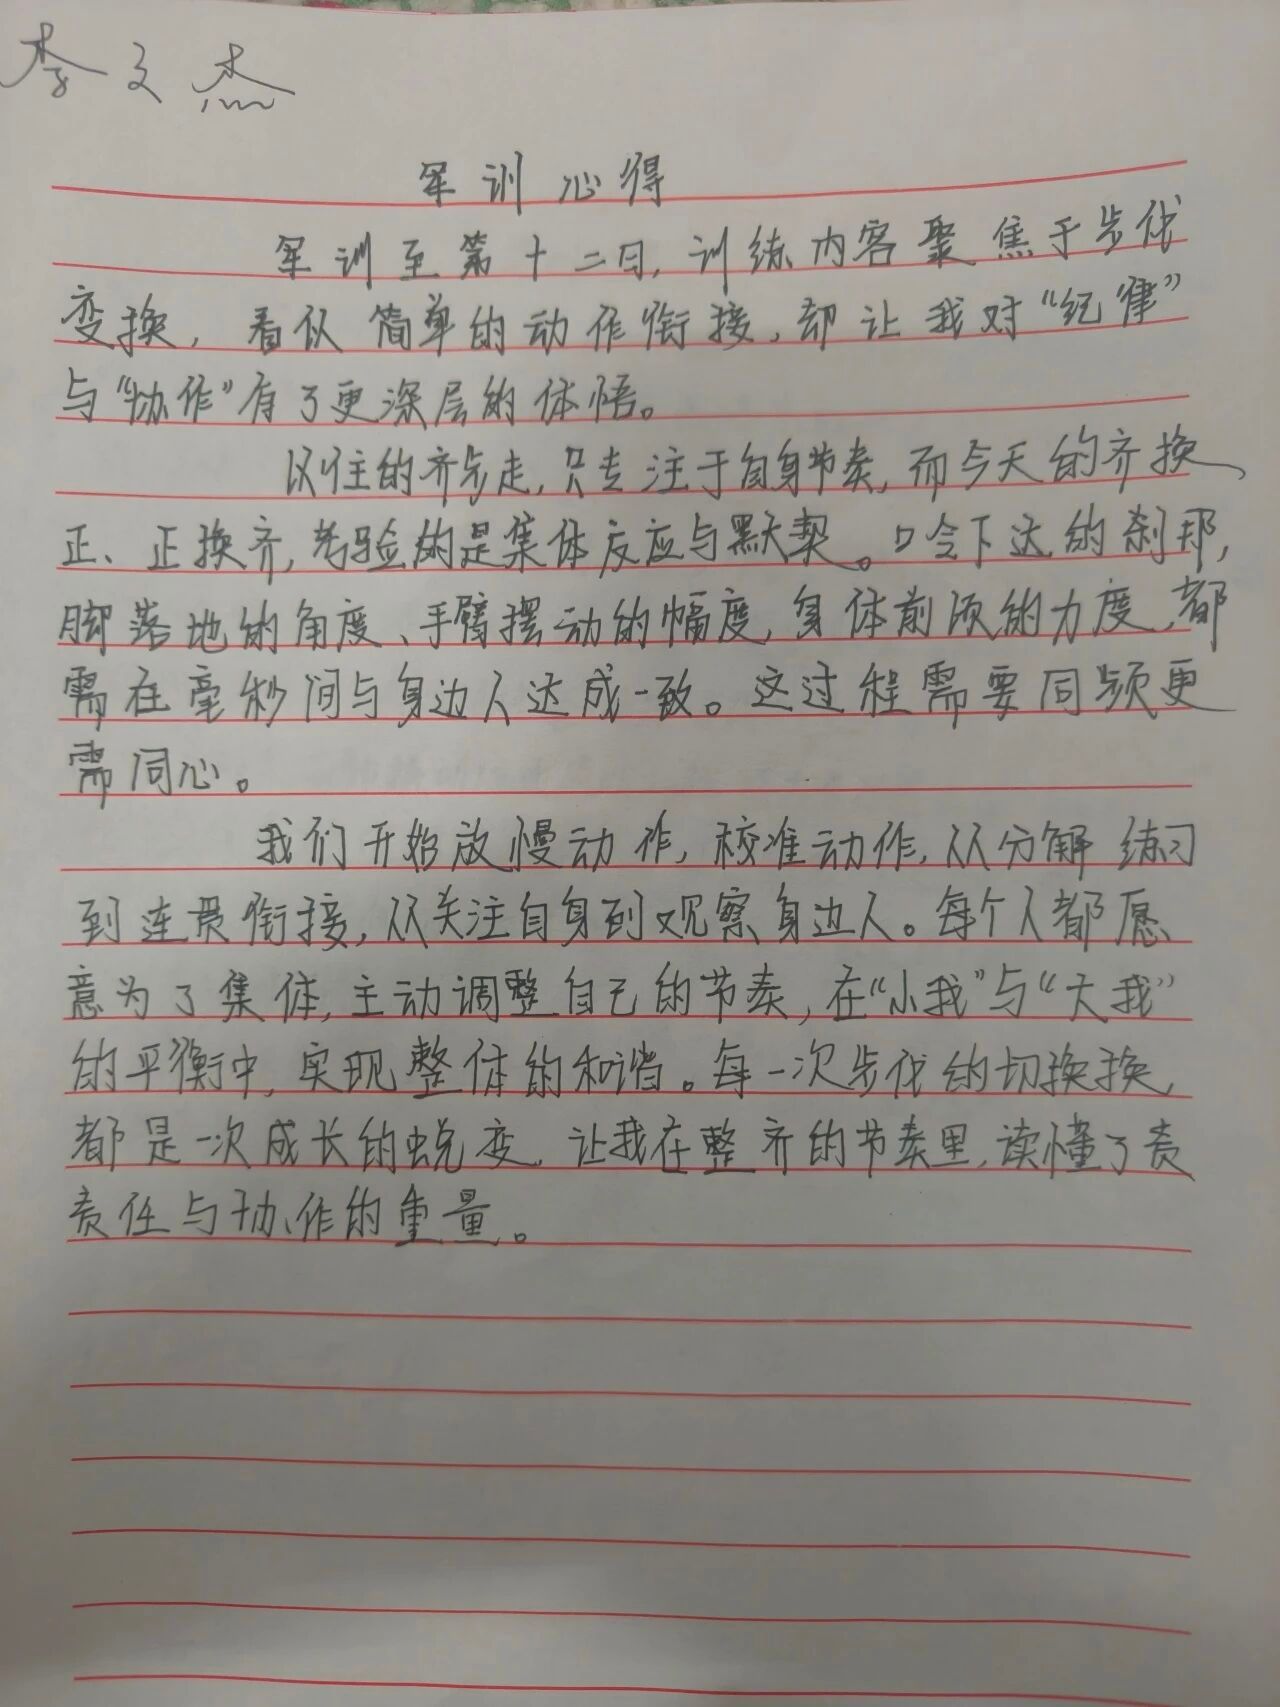 李文杰
军训心得
军训至第十二日，训练内容聚焦于步伐
变换，看似简单的动作衔接，却让我对“纪律”
与“协作”有了更深层的体悟。
以往的齐步走，只专注于自身节奏，而今天的齐换
正、正换齐，考验的是集体反应与默契。口令下达的刹那，
脚落地的角度、手臂摆动的幅度，身体前倾的力度，都
需在毫秒间与身边人达成一致。这过程需要同频更
需同心。
我们开始放慢动作，校准动作，从分解练习
到连贯衔接，从关注自身到观察身边人。每个人都愿
意为了集体，主动调整自己的节奏，在“小我”与“大我”
的平衡中，实现整体的和谐。每一次步伐的切换换，
都是一次成长的蜕变，让我在整齐的节奏里，读懂了责
责任与协作的重量。